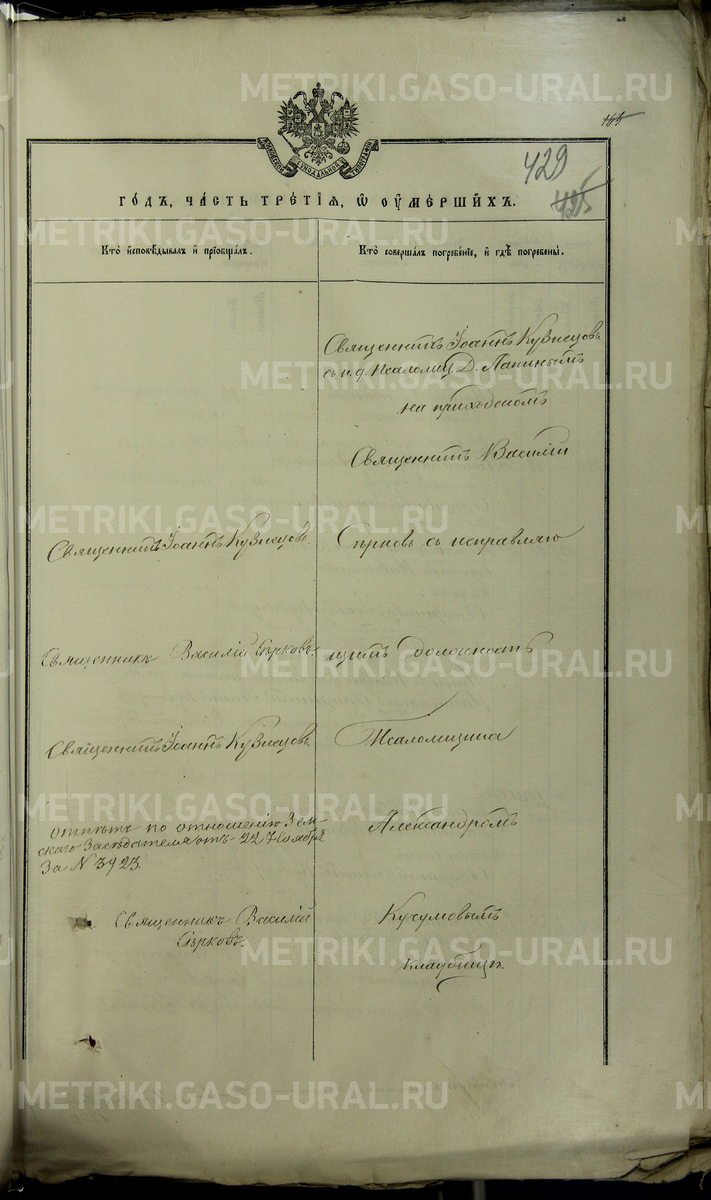 METRIKI.GASO-URAL.RU
429
годъ, часть третія, ѡ оумершихъ.
Кто исповѣдывалъ и пріобщалъ.
Кто совершалъ погребеніе, и гдѣ погребены.
Священникъ Іоаннъ Кузнецовъ
съ и. д. Псаломщ. Д. Лапинымъ
на приходскомъ
Священникъ Василій
Священникъ Іоаннъ Кузнецовъ.
Сѣрковъ съ исправляю
Священникъ Василій Сѣрковъ.
щимъ должность
Священникъ Іоаннъ Кузнецовъ.
Псаломщика
отпѣтъ по отношенію Зем-
скаго Засѣдателя отъ 22 Ноября
За N 3923.
Александромъ
Священникъ Василій
Сѣрковъ.
Кугумовымъ
кладбищѣ.